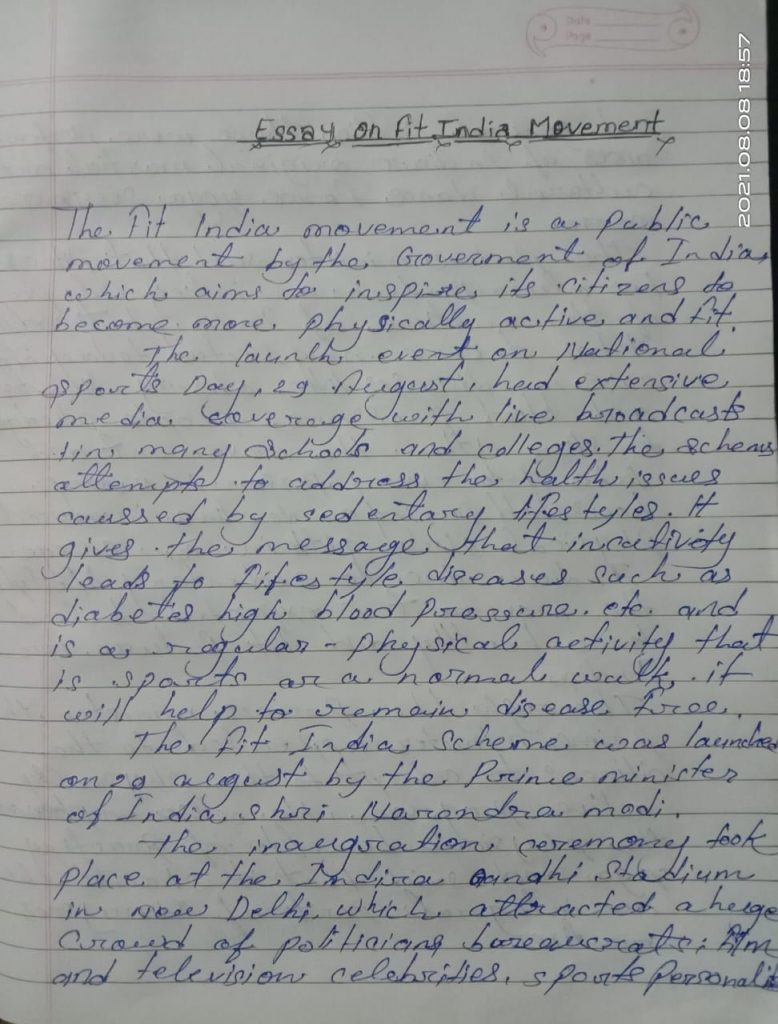 Date
Page
2021.08.08 18:57
Essay on fit India Movement
The Fit India movement is a public
movement by the Goverment of India,
which aims to inspire its citizens to
become more physically active and fit.
The launch event on National
sports Day, 29 August, had extensive
media coverage with live broadcasts
in many schools and colleges. The schems
attempts to address the halth issues
caussed by sedentary lifestyles. It
gives the message that incativity
leads to lifestyle diseases such as
diabetes high blood pressure. etc. and
is a regular - physical activity that
is sports or a normal walk, it
will help to remain disease free.
The fit India scheme was launche
on 29 august by the Prime minister
of India shri Narendra modi.
The inaugration ceremony took
place at the Indira Gandhi Stadium
in new Delhi, which attracted a huge
Crowd of politicians bureaucrats, film
and television celebrities, sports personali